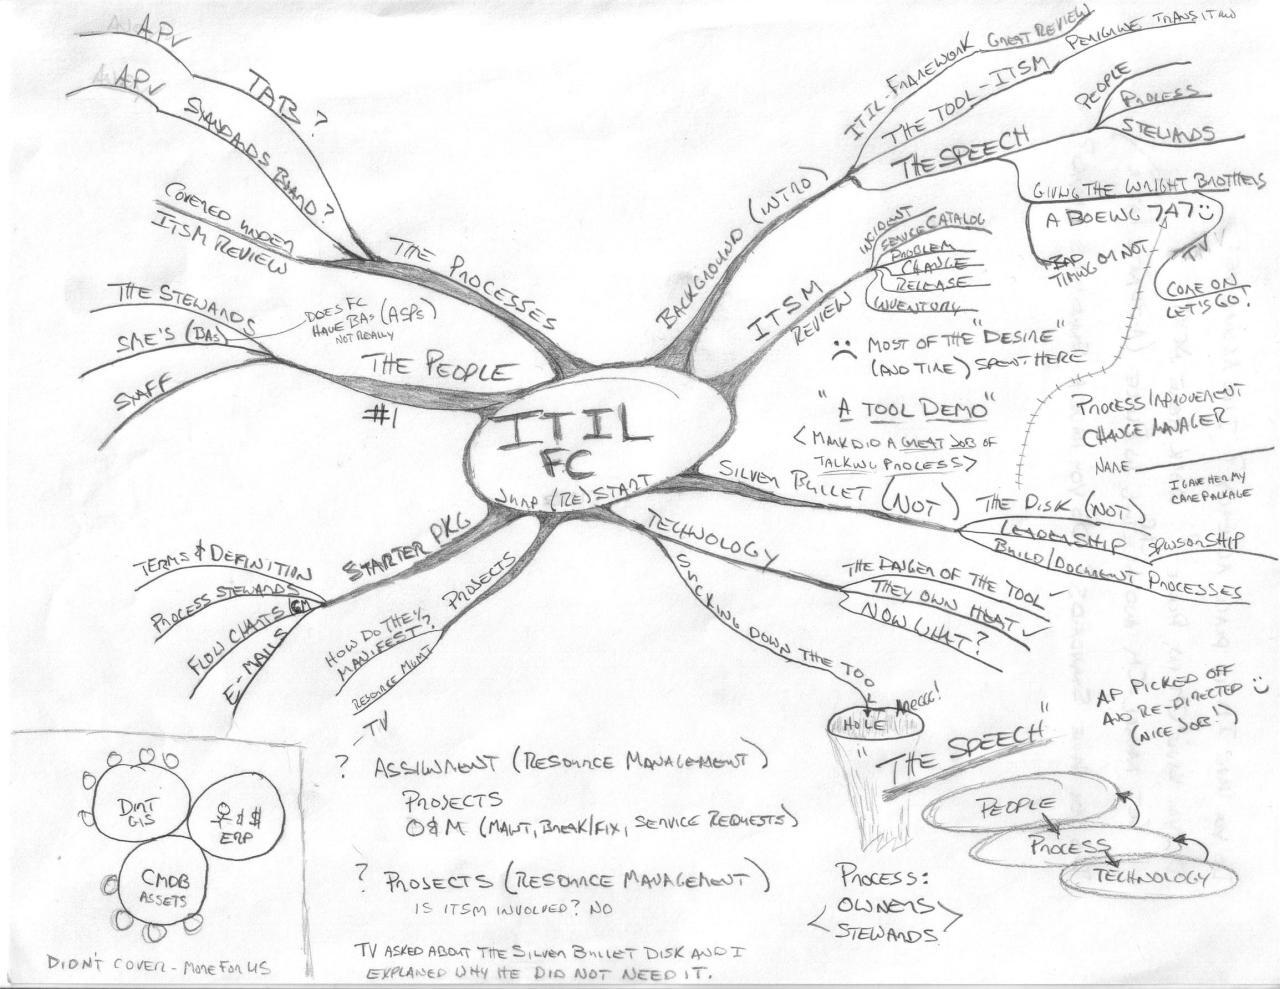 APV
APV
TAB?
STANDARDS BOARD?
COVERED UNDER
ITSM REVIEW
THE PROCESSES
THE STEWARDS
SME'S (BAs)
STAFF
DOES FC
HAVE BAs (ASPs)
NOT REALLY
THE PEOPLE
#1
ITIL
FC
JUMP (RE)START
BACKGROUND (INTRO)
ITIL-FRAMEWORK GREAT REVIEW
THE TOOL-ITSM PEREGRINE TRANSITION
THE SPEECH
PEOPLE
PROCESS
STEWARDS
GIVING THE WRIGHT BROTHERS
A BOEING 747
BAD TIMING OR NOT
TV
COME ON
LET'S GO!
ITSM
REVIEW
INCIDENT
SERVICE CATALOG
PROBLEM
CHANGE
RELEASE
INVENTORY
MOST OF THE "DESIRE"
(AND TIME) SPENT HERE
"A TOOL DEMO"
<MARK DID A GREAT JOB OF
TALKING PROCESS>
PROCESS IMPROVEMENT
CHANGE MANAGER
NAME
I GAVE HER MY
CARE PACKAGE
SILVER BULLET (NOT)
THE DISK (NOT)
LEADERSHIP SPONSORSHIP
BUILD/DOCUMENT PROCESSES
TECHNOLOGY
THE DANGER OF THE TOOL
THEY OWN HEAT
NOW WHAT?
SUCKING DOWN THE TOOL
HOLE
STARTER PKG
TERMS & DEFINITION
PROCESS STEWARDS
FLOW CHARTS CM
E-MAILS
PROJECTS
HOW DO THEY
MANIFEST?
RESOURCE MGMT
-TV
? ASSIGNMENT (RESOURCE MANAGEMENT)
PROJECTS
O&M (MAINT, BREAK/FIX, SERVICE REQUESTS)
? PROJECTS (RESOURCE MANAGEMENT)
IS ITSM INVOLVED? NO
TV ASKED ABOUT THE SILVER BULLET DISK AND I
EXPLANED WHY HE DID NOT NEED IT.
DIRT
GIS
$$
ERP
CMDB
ASSETS
DIDN'T COVER - MORE FOR US
"THE SPEECH"
AP PICKED OFF
AND RE-DIRECTED
(NICE JOB!)
PEOPLE
PROCESS
TECHNOLOGY
PROCESS:
OWNERS
<STEWARDS>